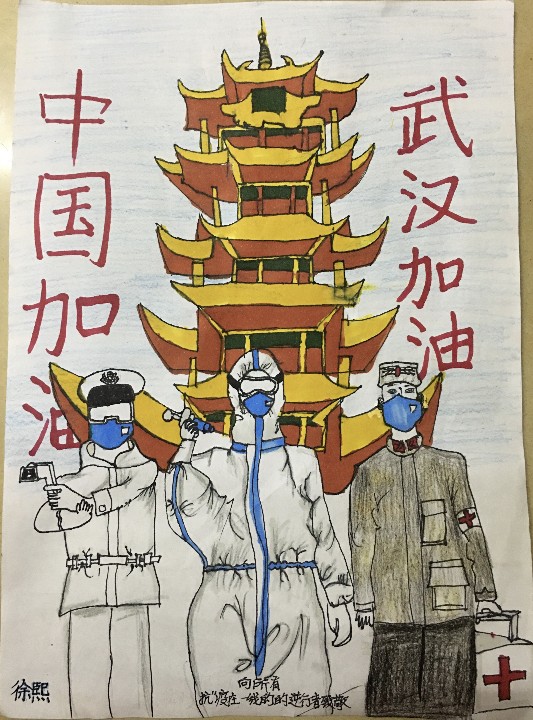 中国加油
武汉加油
向所有
抗"疫在一线的的逆行者致敬
徐熙